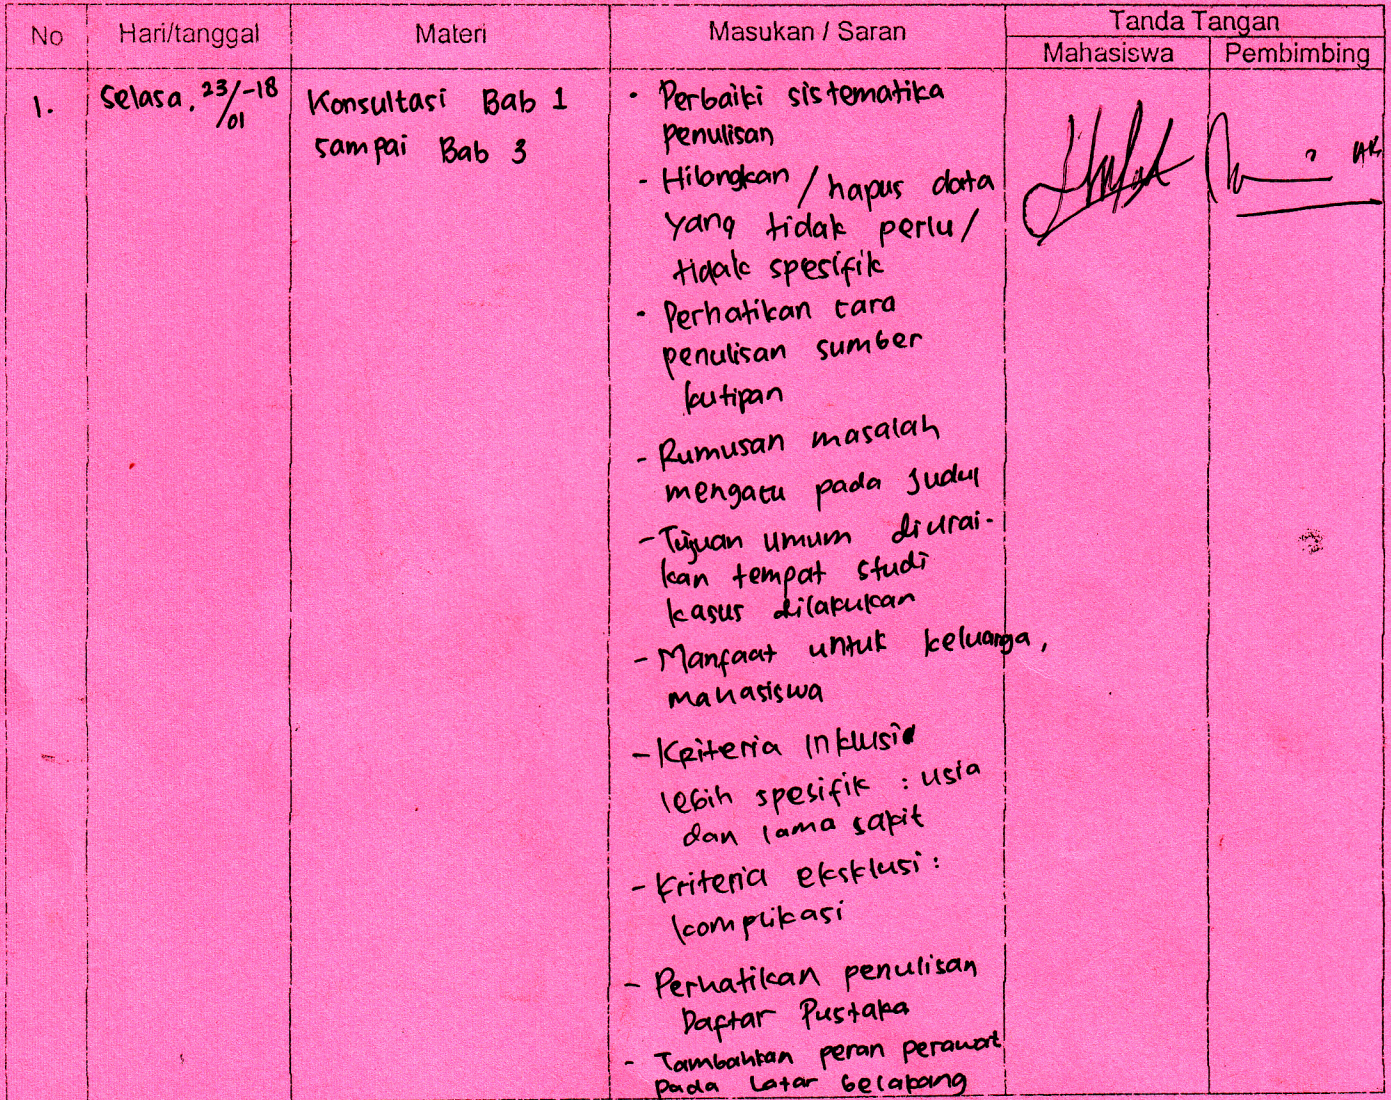 No Hari/tanggal Materi Masukan / Saran Tanda Tangan
Mahasiswa Pembimbing
1. Selasa, 23/01-18 Konsultasi Bab 1
sampai Bab 3
- Perbaiki sistematika
penulisan
- Hilangkan / hapus data
yang tidak perlu /
tidak spesifik
- Perhatikan cara
penulisan sumber
kutipan
- Rumusan masalah
mengacu pada Judul
- Tujuan umum diurai-
kan tempat studi
kasus dilakukan
- Manfaat untuk keluarga,
mahasiswa
- Kriteria Inklusi
lebih spesifik : usia
dan lama sakit
- Kriteria eksklusi :
komplikasi
- Perhatikan penulisan
Daftar Pustaka
- Tambahkan peran perawat
pada Latar belakang